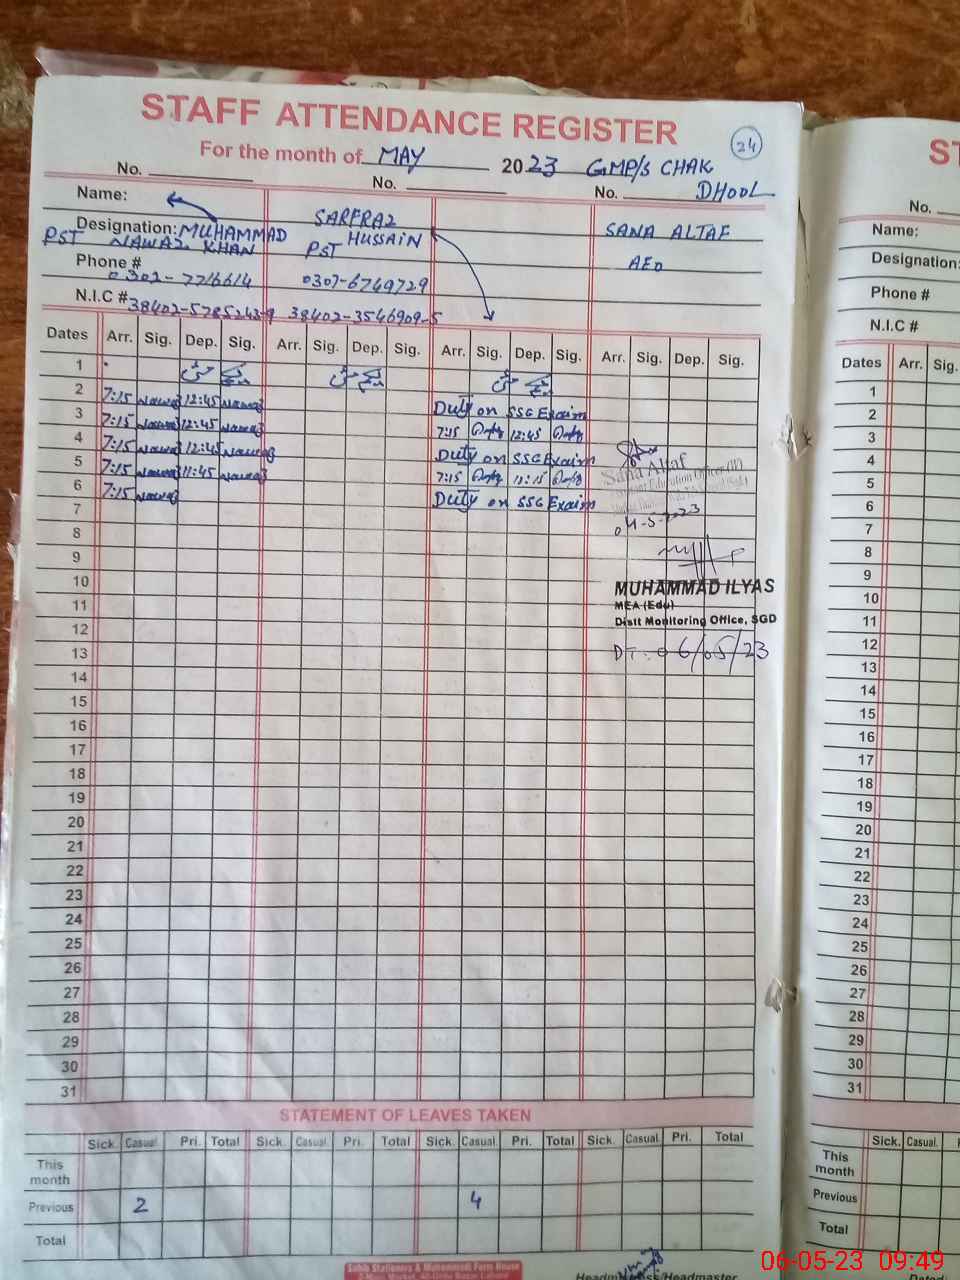 STAFF ATTENDANCE REGISTER
24
For the month of MAY 2023 GMP/S CHAK DHOOL
No. No. No.
Name: MUHAMMAD NAWAZ KHAN SARFRAZ HUSSAIN SANA ALTAF
Designation: PST PST AEO
Phone # 0302-7716614 0307-6749729
N.I.C # 38402-5785243-9 38402-3546909-5
Dates Arr. Sig. Dep. Sig. Arr. Sig. Dep. Sig. Arr. Sig. Dep. Sig. Arr. Sig. Dep. Sig.
1
2 7:15 Nawaz 12:45 Nawaz Duty on SSG Exaim
3 7:15 Nawaz 12:45 Nawaz 7:15 12:45
4 7:15 Nawaz 12:45 Nawaz Duty on SSG Exaim
5 7:15 Nawaz 11:45 Nawaz 7:15 11:15
6 7:15 Nawaz Duty on SSG Exaim
Sana Altaf
04-5-2023
7
8
9
10
MUHAMMAD ILYAS
11
MEA (Edu)
Distt Monitoring Office, SGD
12
13
DT: 06/05/23
14
15
16
17
18
19
20
21
22
23
24
25
26
27
28
29
30
31
STATEMENT OF LEAVES TAKEN
Sick. Casual. Pri. Total Sick. Casual. Pri. Total Sick. Casual. Pri. Total Sick. Casual. Pri. Total
This month
Previous 2 4
Total
Headmistress/Headmaster
No.
Name:
Designation:
Phone #
N.I.C #
Dates Arr. Sig.
1
2
3
4
5
6
7
8
9
10
11
12
13
14
15
16
17
18
19
20
21
22
23
24
25
26
27
28
29
30
31
Sick. Casual.
This month
Previous
Total
06-05-23 09:49